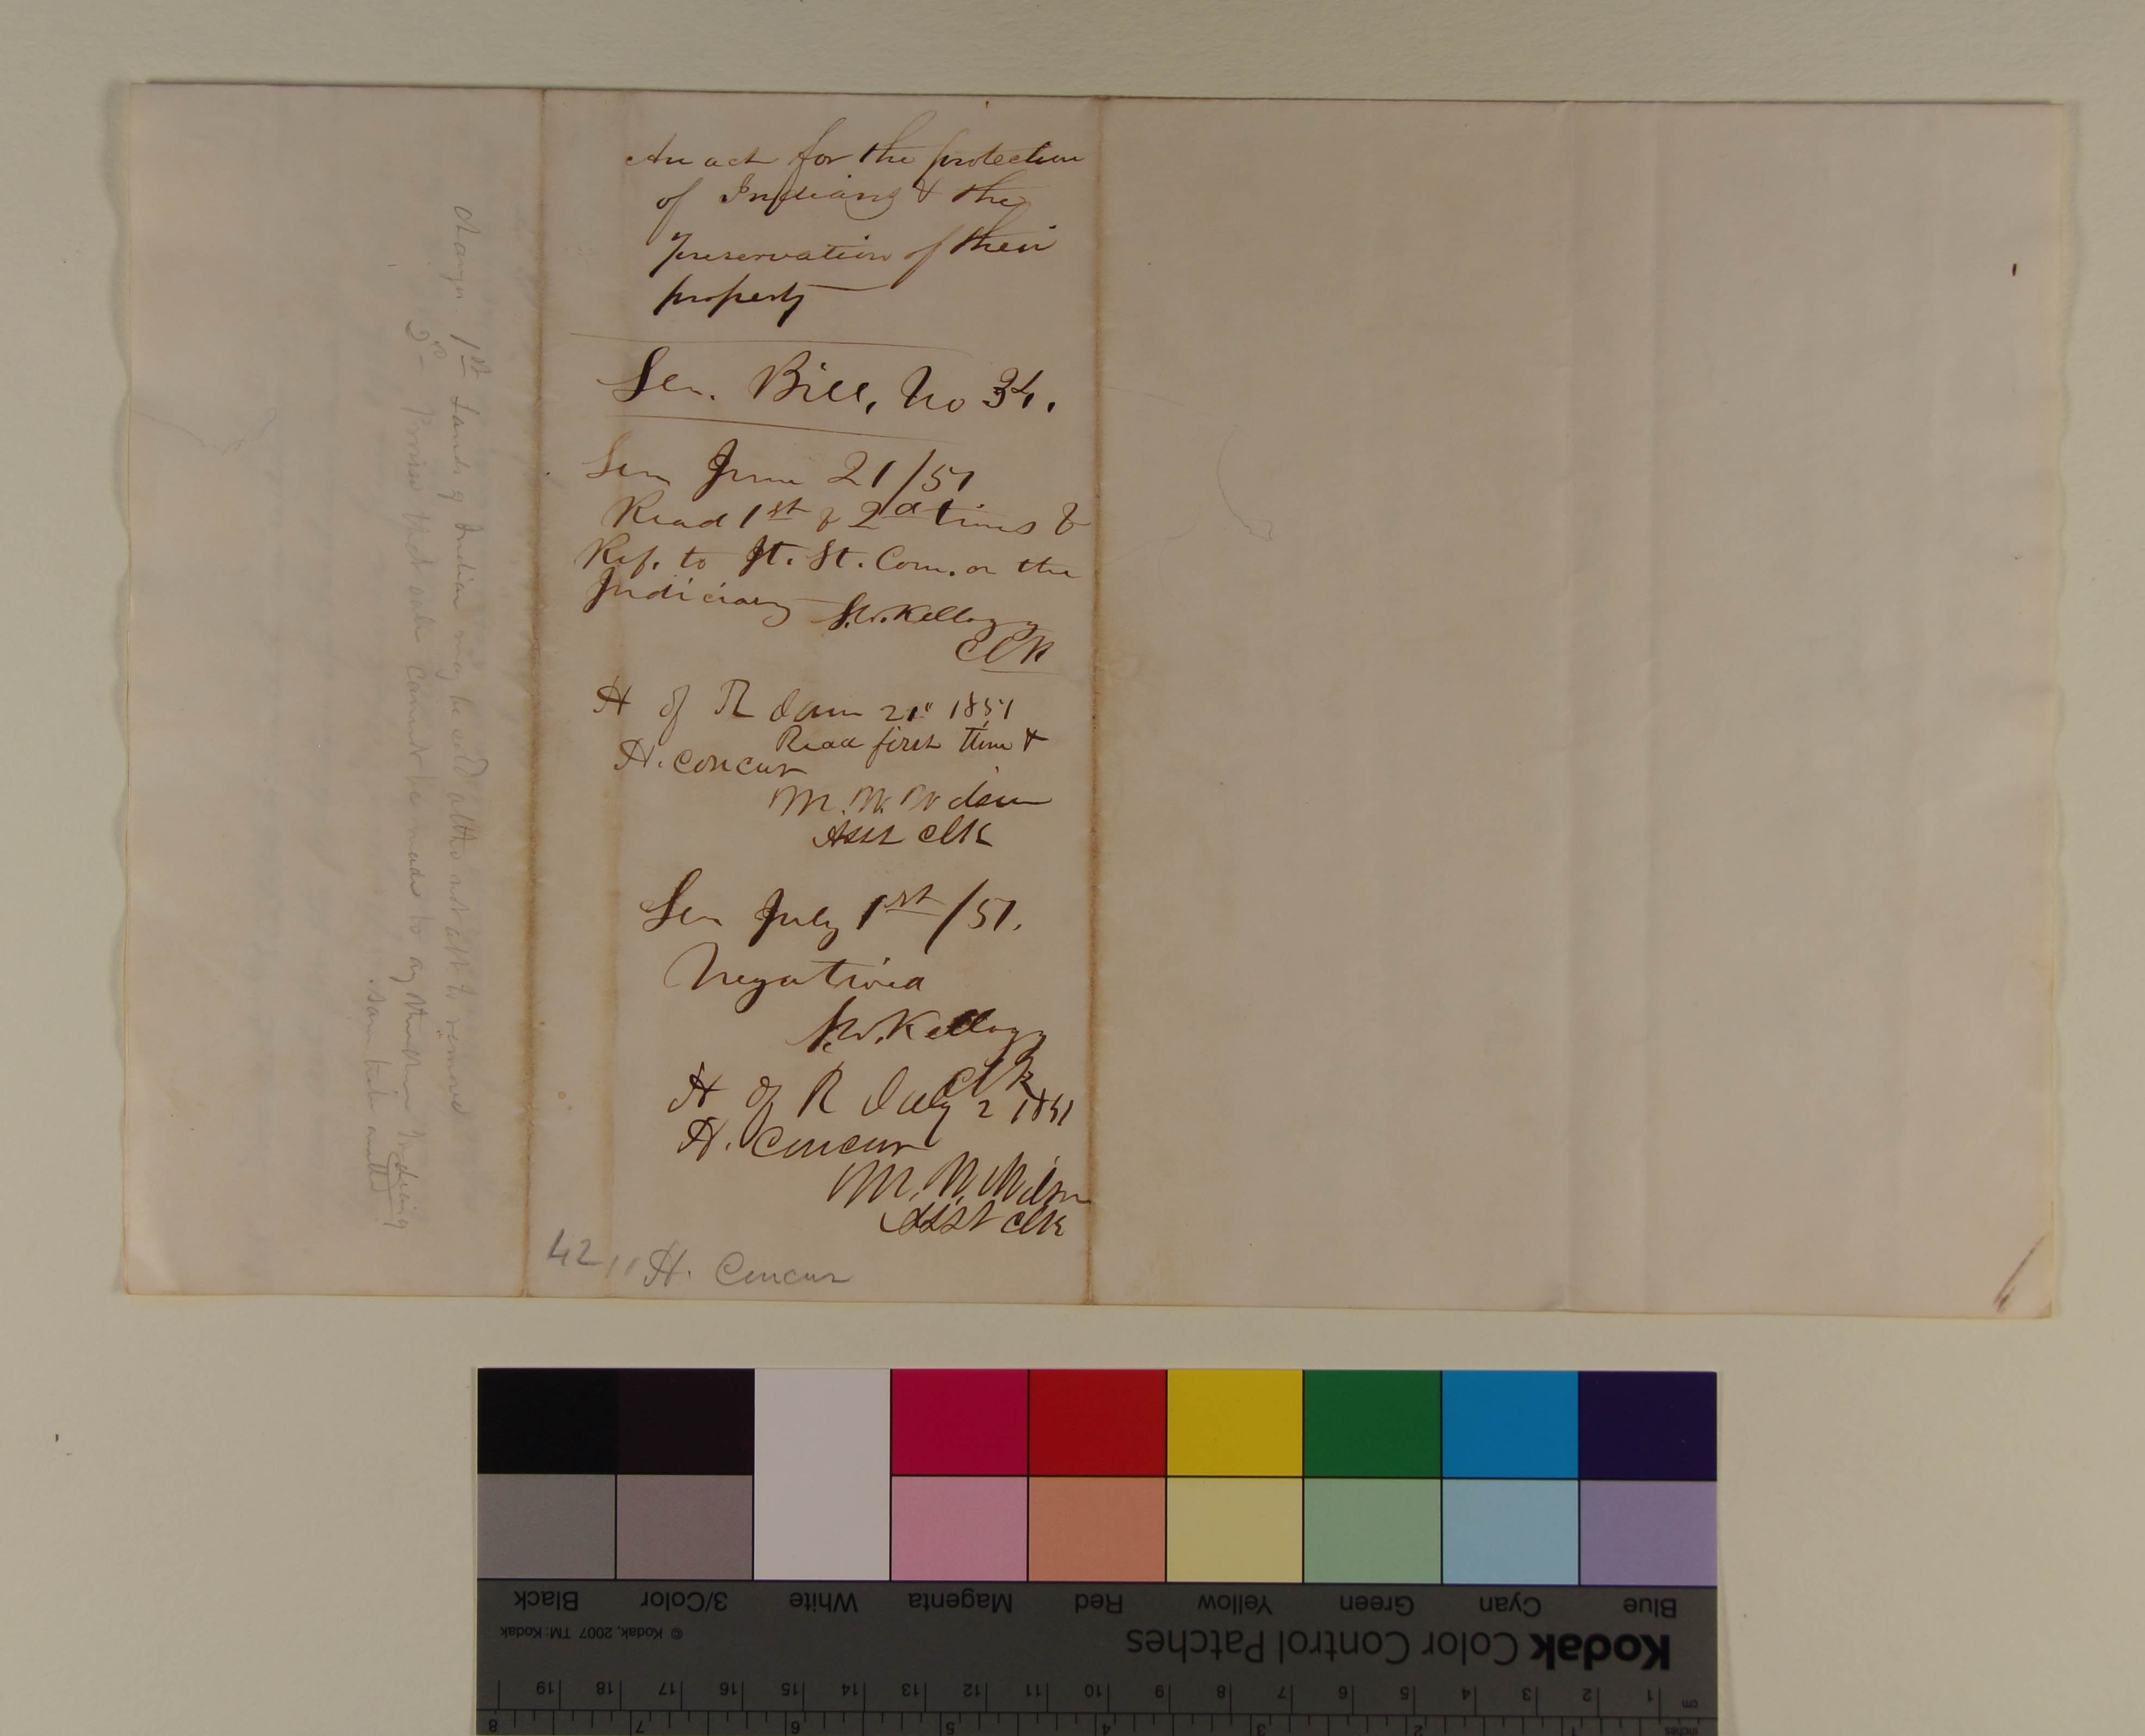 An act for the protection
of Indians & the
preservation of their
property
Sen. Bill, No 34.
Sen June 21/51
Read 1st & 2d times &
Ref. to Jt. St. Com. on the
Judiciary
S.W. Kellogg
Clk
H of R June 21" 1851
Read first time &
H. concur
M. W. Wilson
Asst Clk
Sen July 1st/51.
Negatived
S.W. Kellogg
Clk
H of R July 2 1851
H. Concur
M. W. Wilson
Asst Clk
42 H. Concur
1st Lands of Indian may be sold altho not abt to remove
2d Proviso that sale cannot be made to any other than Indians
same tribe
Blue Cyan Green Yellow Red Magenta White 3/Color Black
Kodak Color Control Patches
© Kodak, 2007 TM: Kodak
cm 1 2 3 4 5 6 7 8 9 10 11 12 13 14 15 16 17 18 19
inches 1 2 3 4 5 6 7 8